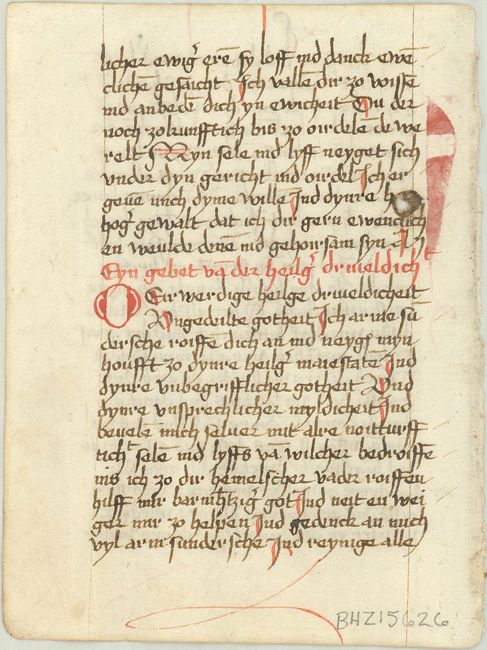 licher ewig̉ erē sy loff ind danck ewē
clichē gesaicht Ich vallē dir zo voisse
ind anbedē dich yn ewicheit Du der
noch zokunfftich bis zo oirdelē de we
relt Myn sele ind lyff neyget sich
vnder dyn gericht ind oirdel Ich er
geuē mich dyme wille Ind dynre h
hog̉ gewalt dat ich dir gern ewenclich
en weulde denē ind gehoirsam syn
Eyn gebet vā der heilg̉ driueldicht
O Eirwerdige heilge driueldicheit
Vngedeilte gotheit Ich arme sū
dersche roiffe dich an ind neygē myn
houfft zo dynre heilg̉ maiestatē Ind
dynre vnbegrifflicher gotheit Vnd
dynre vnsprechlicher myldicheit Ind
beuelē mich seluer mit alre noitturff
ticht sele ind lyffs vā wilcher bedroiffe
nis ich zo dir hemelscher vader roiffen
hilff mir barmh̉tzig̉ got Ind neit en wei
ger mir zo helpen Ind gedenck an mich
vyl arm sundersche Ind reynige alle
BHZ15626